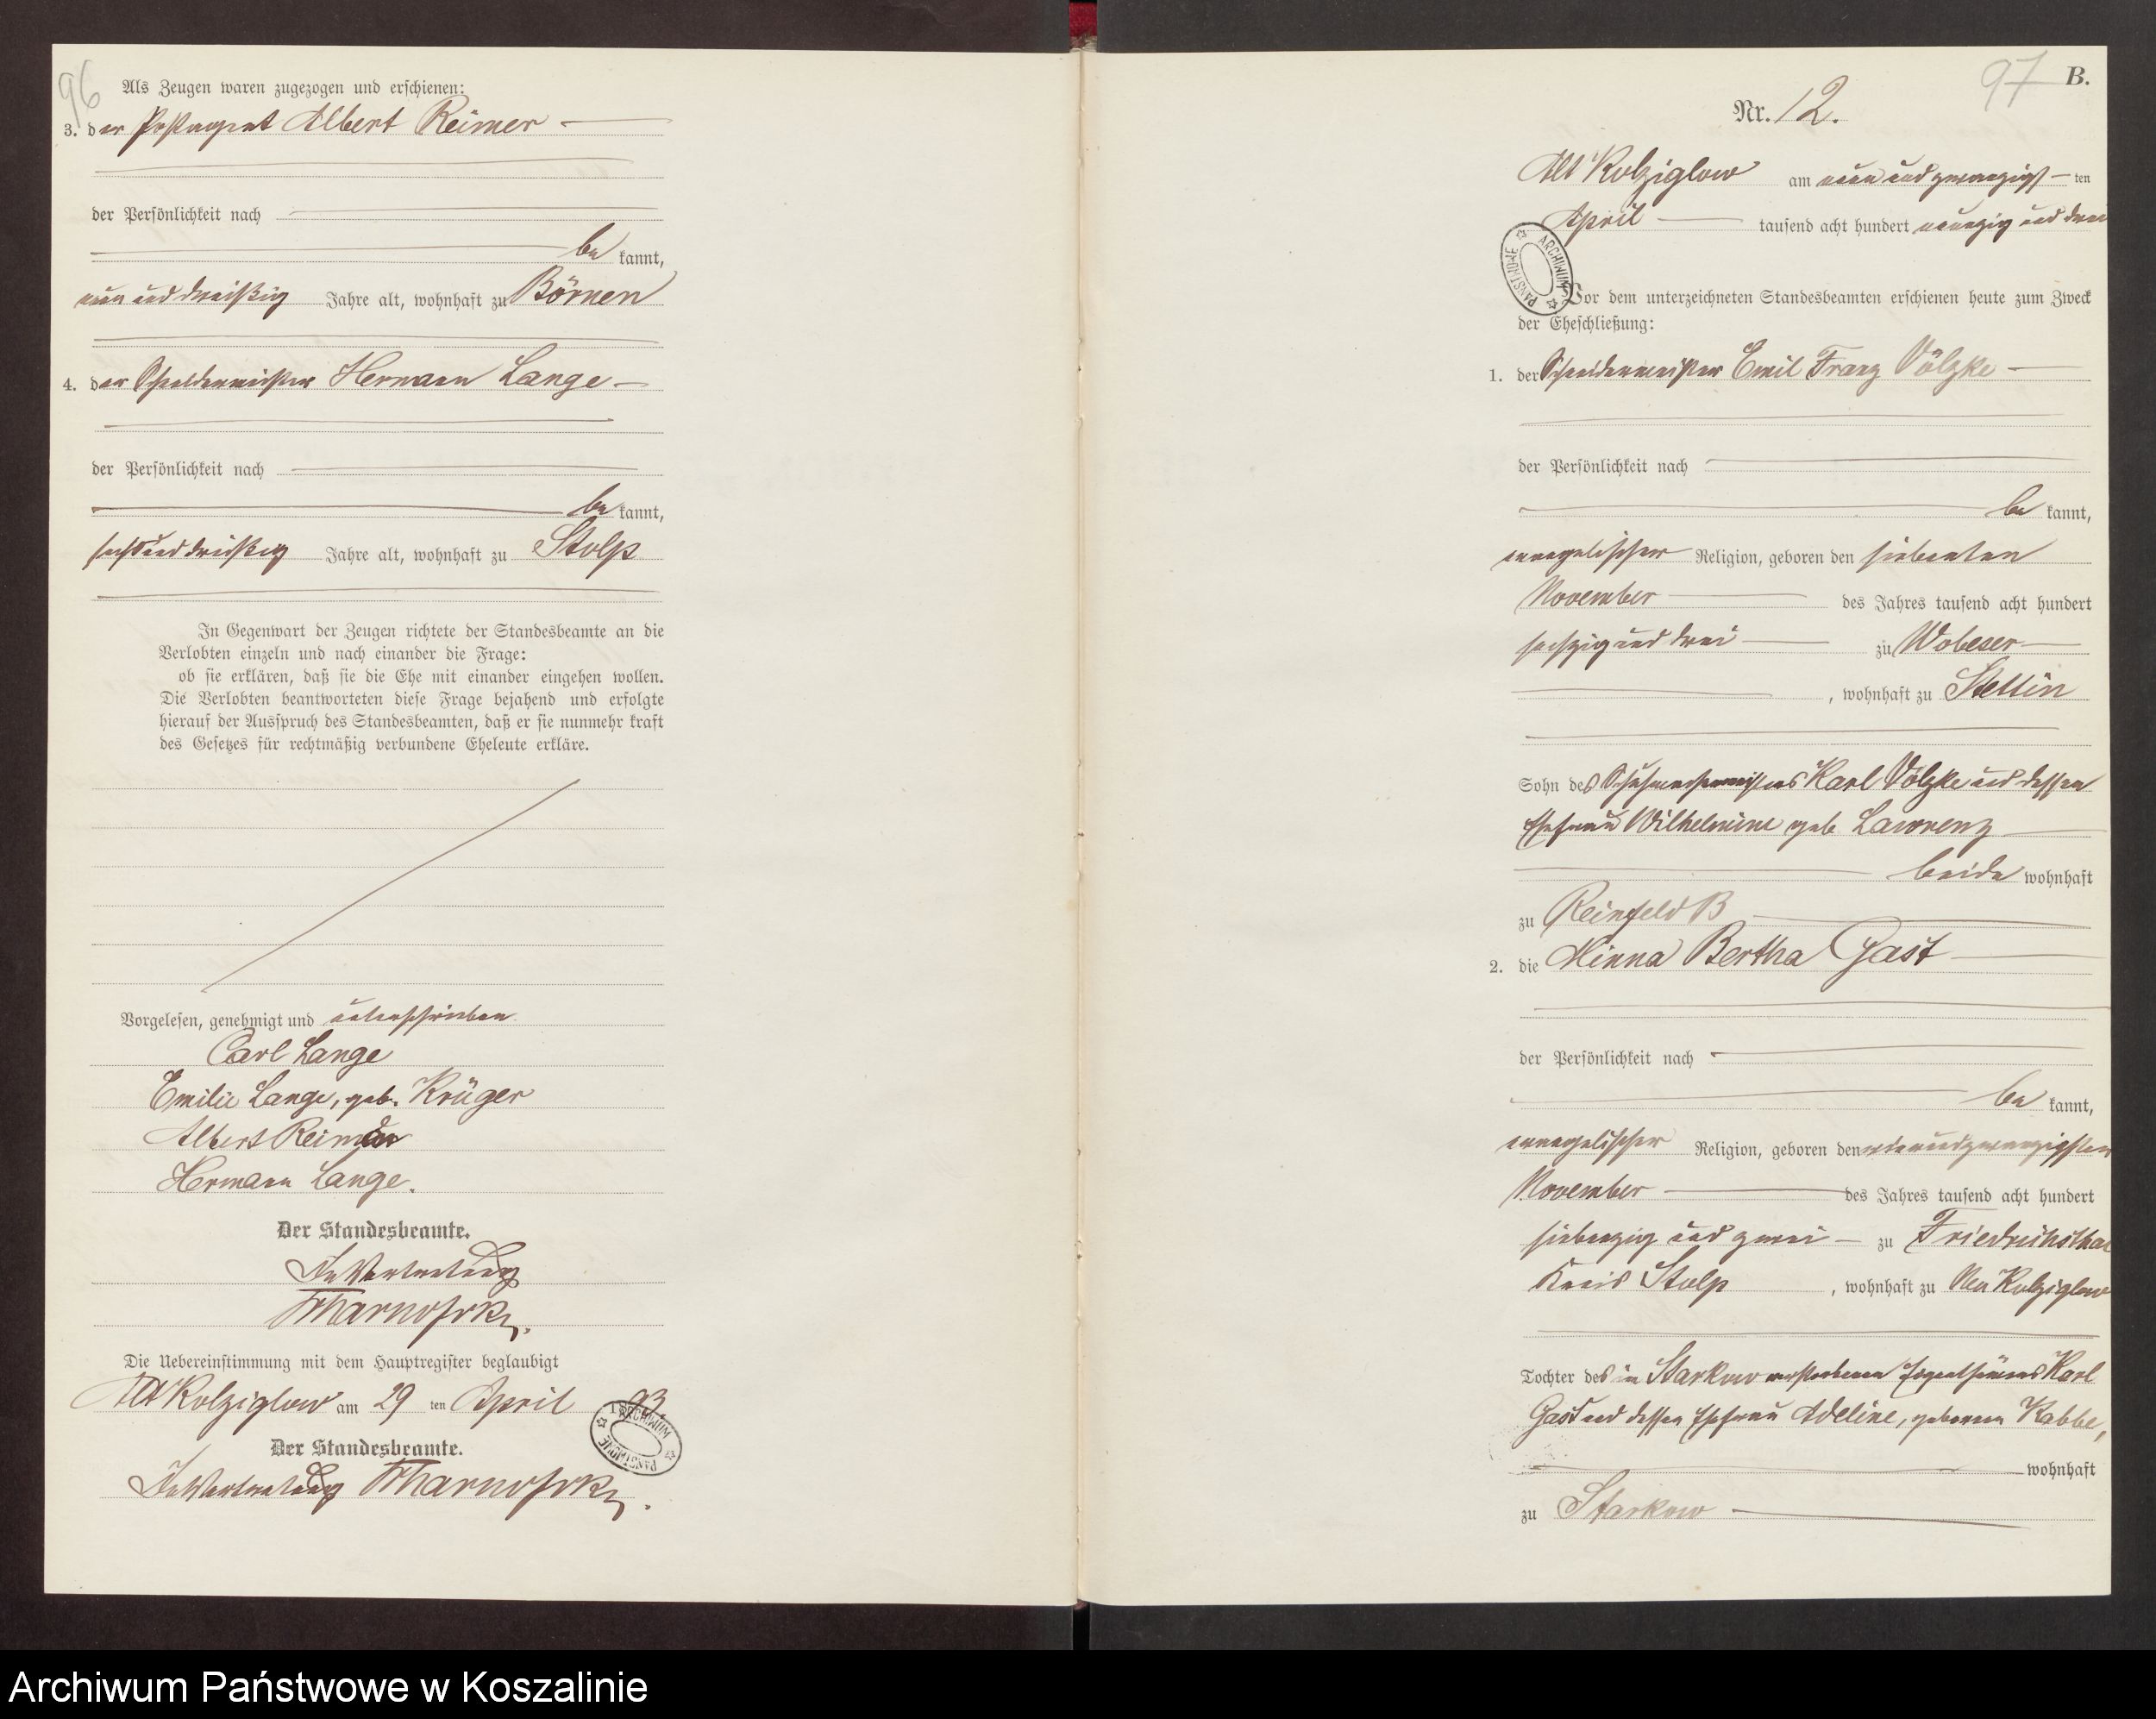 96
Als Zeugen waren zugezogen und erschienen:
3. der Postagent Albert Reimer
der Persönlichkeit nach
bekannt,
neun und dreißig Jahre alt, wohnhaft zu Börnen
4. der Schneidermeister Hermann Lange
der Persönlichkeit nach
bekannt,
sechs und dreißig Jahre alt, wohnhaft zu Stolp
In Gegenwart der Zeugen richtete der Standesbeamte an die
Verlobten einzeln und nach einander die Frage:
ob sie erklären, daß sie die Ehe mit einander eingehen wollen.
Die Verlobten beantworteten diese Frage bejahend und erfolgte
hierauf der Ausspruch des Standesbeamten, daß er sie nunmehr kraft
des Gesetzes für rechtmäßig verbundene Eheleute erkläre.
Vorgelesen, genehmigt und unterschrieben
Carl Lange
Emilie Lange, geb. Krüger
Albert Reimer
Hermann Lange.
Der Standesbeamte.
In Vertretung
Die Uebereinstimmung mit dem Hauptregister beglaubigt
Alt Kolziglow am 29 ten April 1893.
ARCHIWUM PAŃSTWOWE
Der Standesbeamte.
In Vertretung
97 B.
Nr. 12.
Alt Kolziglow am neun und zwanzigst ten
April tausend acht hundert neunzig und drei
ARCHIWUM PAŃSTWOWE
Vor dem unterzeichneten Standesbeamten erschienen heute zum Zweck
der Eheschließung:
1. der Schneidermeister Emil Franz Völzke
der Persönlichkeit nach
bekannt,
evangelischer Religion, geboren den siebenten
November des Jahres tausend acht hundert
sechzig und drei zu Wobeser
, wohnhaft zu Stettin
Sohn des Schuhmachermeisters Karl Völzke und dessen
Ehefrau Wilhelmine geb Lawrenz
beide wohnhaft
zu Reinfeld B
2. die Minna Bertha Gast
der Persönlichkeit nach
bekannt,
evangelischer Religion, geboren den vierundzwanzigsten
November des Jahres tausend acht hundert
siebenzig und zwei zu Friedrichsthal
Kreis Stolp, wohnhaft zu Neu Kolziglow
Tochter des in Starkow verstorbenen Eigenthümers Karl
Gast und dessen Ehefrau Adeline, geborenen Kabbe,
wohnhaft
zu Starkow
Archiwum Państwowe w Koszalinie